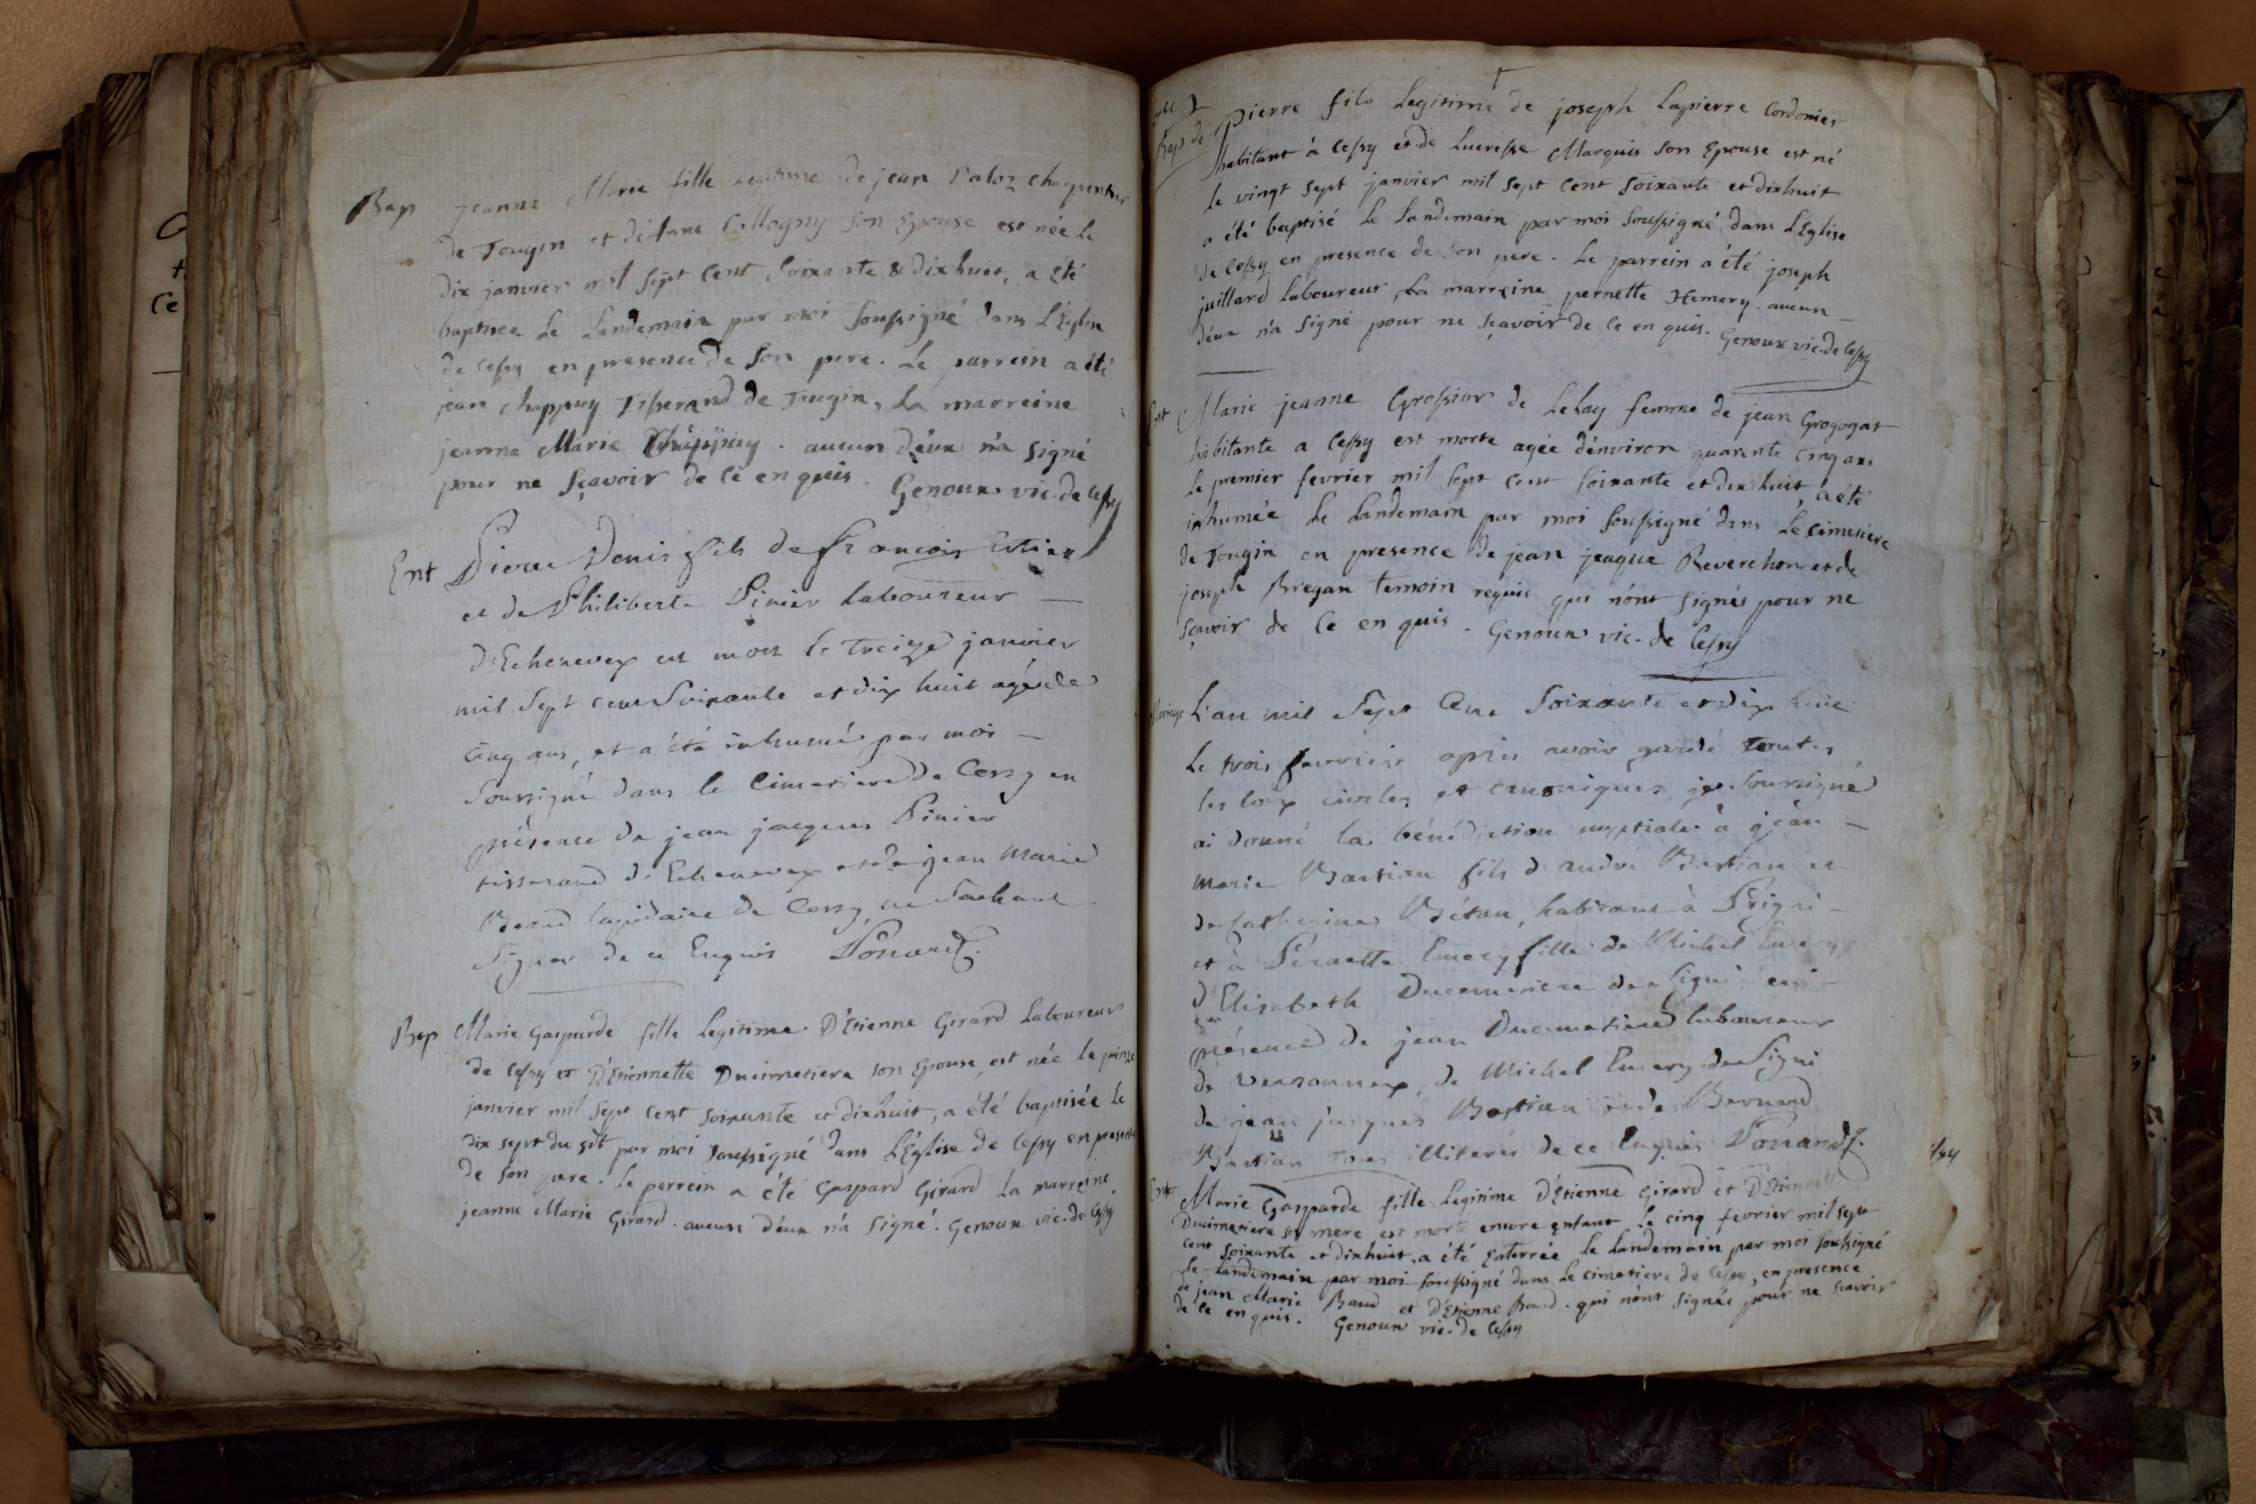 Bap jeanne Marie fille legitime de jean Paloz charpentier
de Tougin et d'étiene Collogny son Epouse est née le
dix janvier mil sept cent soixante & dixhuit, a été
baptisée le landemain par moi soussigné dans L'Eglise
de Cessy en presence de son pere. Le parrein a été
jean chappuy Tisserand de Tougin, La marreine
jeanne Marie Chappuy. aucun d'eux n'a signé
pour ne sçavoir de ce en quis. Genoux vic. de Cessy
Ent Pierre Denis fils de francois
et de Philiberte Pinier laboureur —
d'Echenevex est mort le treize janvier
mil sept cent soixante et dix huit agé de
cinq ans, et a été inhumé par moi —
soussigné dans le cimetiere de Cessy en
présence de jean jacques Pinier
tisserand d'Echenevex et de jean Marie
Baud lapidaire de Cessy ne sachant
signer de ce Enquis Ponard
Bap Marie Gasparde fille legitime D'Etienne Girard Laboureur
de Cessy et D'Etiennette Ducimetiere son Epouse, est née le quinze
janvier mil sept cent soixante et dixhuit, a été baptisée le
dix sept du dit par moi soussigné dans L'Eglise de Cessy en presence
de son pere. le perrein a été Gaspard Girard la marreine
jeanne Marie Girard. aucun d'eux n'a signé. Genoux vic. de Cessy
Bap de Pierre fils legitime de joseph Lapierre Cordonier
habitant à Cessy et de Lucresse Marquis son Epouse est né
le vingt sept janvier mil sept cent soixante et dixhuit
a été baptisé le landemain par moi soussigné dans L'Eglise
de Cessy en presence de son pere. Le parrein a été joseph
juillard Laboureur, La marreine pernette Hemery. aucun —
d'eux n'a signé pour ne sçavoir de ce en quis. Genoux vic. de Cessy
Ent Marie jeanne Grossior de Lelay femme de jean Grogogat
habitante a Cessy est morte agée d'environ quarente cinq ans
le premier fevrier mil sept cent soixante et dix huit, a été
inhumée le landemain par moi soussigné dans le cimetiere
de Tougin en presence de jean jeaque Reverchon et de
joseph Bregan temoin réquis qui n'ont signés pour ne
sçavoir de ce en quis. Genoux vic. de Cessy
Mariage L'an mil sept cent soixante et dix huit
le trois fevrier après avoir gardé toutes
les loix civiles et canoniques je soussigné
ai donné la bénédiction nuptiale à jean —
marie Bastian fils d'andre Bastian et
de Catherine Bétan, habitant à Prigni —
et à Pernette Emery fille de Michel Emery
d'Elisabeth Ducimetiere de Signi en —
présence de jean Ducimetiere laboureur
de Versonnex, de Michel Emery de Signi
de jean jacques Bastian et de Bernard
Bastian tous illiterés de ce Enquis Ponard
Ent Marie Gasparde fille legitime D'Etienne Girard et D'Etiennette
Ducimetiere sa mere est morte encore enfant le cinq fevrier mil sept
cent soixante et dixhuit, a été enterrée le landemain par moi soussigné
le landemain par moi soussigné dans le cimetiere de Cessy, en presence
de jean Marie Baud et D'Etienne Baud. qui n'ont signés pour ne scavoir
de ce en quis. Genoux vic. de Cessy